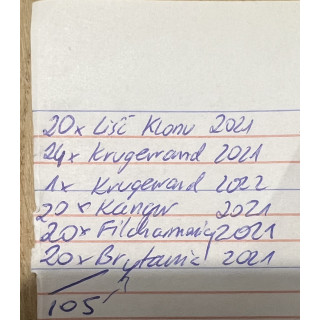 20x Liść Klonu 2021
24x Krugerrand 2021
1x Krugerrand 2022
20x Kangur 2021
20x Filcharmonicy 2021
20x Brytania 2021
105